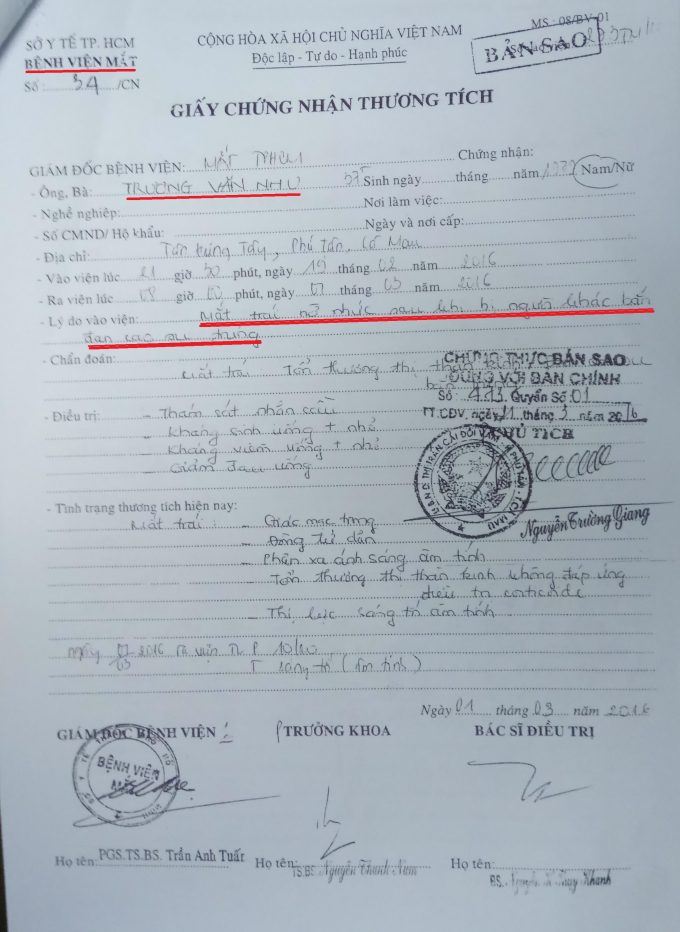 SỞ Y TẾ TP. HCM
BỆNH VIỆN MẮT
Số: 34 /CN
CỘNG HÒA XÃ HỘI CHỦ NGHĨA VIỆT NAM
Độc lập - Tự do - Hạnh phúc
MS: 08/BV-01
BẢN SAO
GIẤY CHỨNG NHẬN THƯƠNG TÍCH
GIÁM ĐỐC BỆNH VIỆN: MẮT TPHCM Chứng nhận:
- Ông, Bà: TRƯƠNG VĂN NHU 37T Sinh ngày tháng năm Nam/Nữ
- Nghề nghiệp: Nơi làm việc:
- Số CMND/ Hộ khẩu: Ngày và nơi cấp:
- Địa chỉ: Tân Hưng Tây, Phú Tân, Cà Mau
- Vào viện lúc 21 giờ 30 phút, ngày 19 tháng 02 năm 2016
- Ra viện lúc 08 giờ 00 phút, ngày 01 tháng 03 năm 2016
- Lý do vào viện: Mắt trái mờ nhức sau khi bị người khác bắn
đạn cao su trúng
- Chẩn đoán: Mắt trái Tổn thương thị thần kinh
CHỨNG THỰC BẢN SAO
ĐÚNG VỚI BẢN CHÍNH
Số: Quyển Số: 01
TT.CĐV, ngày 11 tháng 3 năm 2016
CHỦ TỊCH
Nguyễn Trường Giang
- Điều trị: - Thám sát nhãn cầu
- Kháng sinh uống + nhỏ
- Kháng viêm uống + nhỏ
- Giảm đau uống
- Tình trạng thương tích hiện nay:
Mắt trái: - Giác mạc trong
- Đồng tử dãn
- Phản xạ ánh sáng âm tính
- Tổn thương thị thần kinh không đáp ứng
điều trị corticoide
- Thị lực sáng tối âm tính
Ngày 01/03 2016 ra viện TL P 10/10
T sáng tối (âm tính)
Ngày 01 tháng 03 năm 2016
GIÁM ĐỐC BỆNH VIỆN TRƯỞNG KHOA BÁC SĨ ĐIỀU TRỊ
BỆNH VIỆN
Họ tên: PGS.TS.BS. Trần Anh Tuất Họ tên: TS.BS. Nguyễn Thanh Nam Họ tên: BS. Nguyễn Khanh